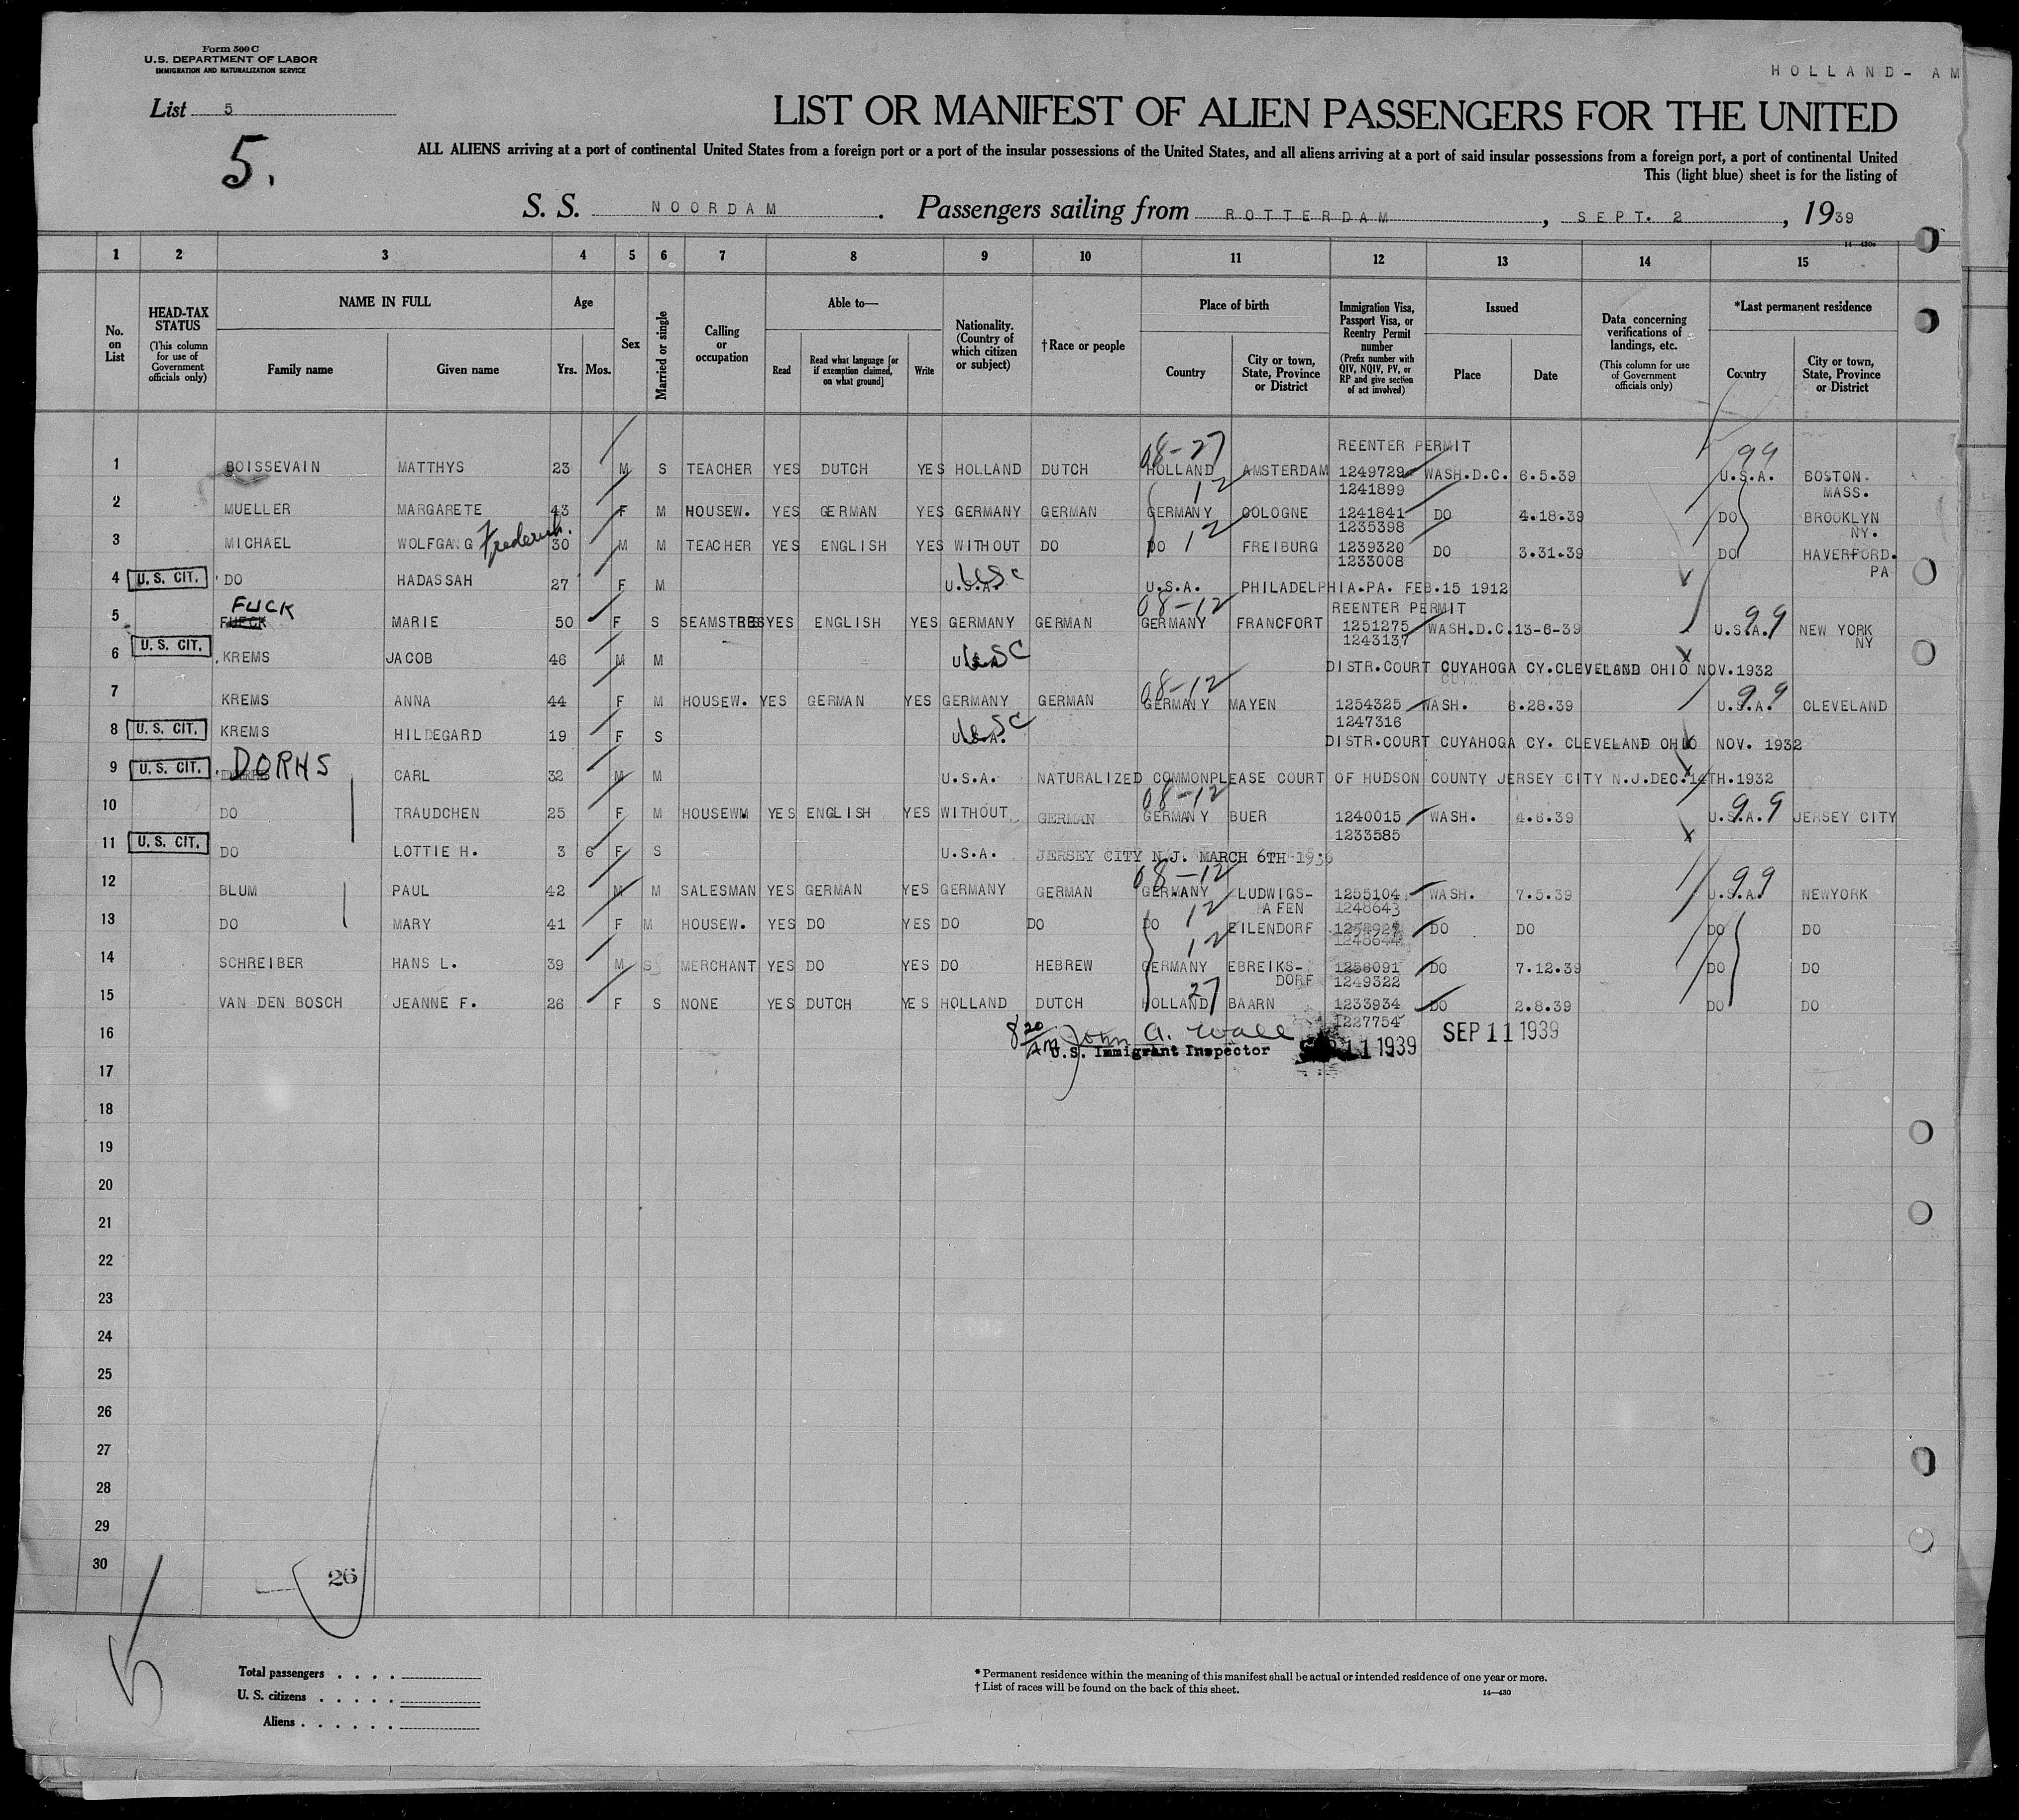 Form 500 C
U. S. DEPARTMENT OF LABOR
IMMIGRATION AND NATURALIZATION SERVICE
HOLLAND- AM
List 5
5.
LIST OR MANIFEST OF ALIEN PASSENGERS FOR THE UNITED
ALL ALIENS arriving at a port of continental United States from a foreign port or a port of the insular possessions of the United States, and all aliens arriving at a port of said insular possessions from a foreign port, a port of continental United
This (light blue) sheet is for the listing of
S. S. NOORDAM. Passengers sailing from ROTTERDAM, SEPT. 2, 1939
14—430a
1 2 3 4 5 6 7 8 9 10 11 12 13 14 15
No. on List
HEAD-TAX STATUS (This column for use of Government officials only)
NAME IN FULL
Family name Given name
Age
Yrs. Mos.
Sex
Married or single
Calling or occupation
Able to—
Read Read what language [or if exemption claimed, on what ground] Write
Nationality. (Country of which citizen or subject)
† Race or people
Place of birth
Country City or town, State, Province or District
Immigration Visa, Passport Visa, or Reentry Permit number (Prefix number with QIV, NQIV, PV, or RP and give section of act involved)
Issued
Place Date
Data concerning verifications of landings, etc. (This column for use of Government officials only)
*Last permanent residence
Country City or town, State, Province or District
08-27 REENTER PERMIT 99
1 BOISSEVAIN MATTHYS 23 M S TEACHER YES DUTCH YES HOLLAND DUTCH HOLLAND AMSTERDAM 1249729 WASH.D.C. 6.5.39 U.S.A. BOSTON.
12 1241899 MASS.
2 MUELLER MARGARETE 43 F M HOUSEW. YES GERMAN YES GERMANY GERMAN GERMANY COLOGNE 1241841 DO 4.18.39 DO BROOKLYN
12 1235398 NY.
3 MICHAEL WOLFGANG Frederick. 30 M M TEACHER YES ENGLISH YES WITHOUT DO DO FREIBURG 1239320 DO 3.31.39 DO HAVERFORD.
1233008 PA
4 U. S. CIT. DO HADASSAH 27 F M U.S.A. USC U.S.A. PHILADELPHIA.PA. FEB.15 1912
FUCK 08-12 REENTER PERMIT
5 FUECK MARIE 50 F S SEAMSTRESS YES ENGLISH YES GERMANY GERMAN GERMANY FRANCFORT 1251275 WASH.D.C. 13-6-39 U.S.A. 99 NEW YORK
1243137 NY
6 U. S. CIT. KREMS JACOB 46 M M U.S.A. USC DISTR.COURT CUYAHOGA CY.CLEVELAND OHIO NOV.1932
08-12
7 KREMS ANNA 44 F M HOUSEW. YES GERMAN YES GERMANY GERMAN GERMANY MAYEN 1254325 WASH. 6.28.39 U.S.A. 99 CLEVELAND
1247316
8 U. S. CIT. KREMS HILDEGARD 19 F S U.S.A. USC DISTR.COURT CUYAHOGA CY. CLEVELAND OHIO NOV. 1932
9 U. S. CIT. DORHS CARL 32 M M U.S.A. NATURALIZED COMMONPLEASE COURT OF HUDSON COUNTY JERSEY CITY N.J.DEC.14TH.1932
08-12
10 DO TRAUDCHEN 25 F M HOUSEWM YES ENGLISH YES WITHOUT GERMAN GERMANY BUER 1240015 WASH. 4.6.39 U.S.A. 99 JERSEY CITY
1233585
11 U. S. CIT. DO LOTTIE H. 3 6 F S U.S.A. JERSEY CITY N.J. MARCH 6TH 1936
08-12 99
12 BLUM PAUL 42 M M SALESMAN YES GERMAN YES GERMANY GERMAN GERMANY LUDWIGS- 1255104 WASH. 7.5.39 U.S.A. NEWYORK
12 AFEN 1248643
13 DO MARY 41 F M HOUSEW. YES DO YES DO DO DO EILENDORF DO DO DO DO
12 1248644
14 SCHREIBER HANS L. 39 M S MERCHANT YES DO YES DO HEBREW GERMANY EBREIKS- 1256091 DO 7.12.39 DO DO
27 DORF 1249322
15 VAN DEN BOSCH JEANNE F. 26 F S NONE YES DUTCH YES HOLLAND DUTCH HOLLAND BAARN 1233934 DO 2.8.39 DO DO
1227754
16 8 20 AM John A. Wall SEP 11 1939
U.S. Immigrant Inspector SEP 11 1939
17
18
19
20
21
22
23
24
25
26
27
28
29
30
26
5
Total passengers . . . .
U. S. citizens . . . . .
Aliens . . . . . .
* Permanent residence within the meaning of this manifest shall be actual or intended residence of one year or more.
† List of races will be found on the back of this sheet.
14—430